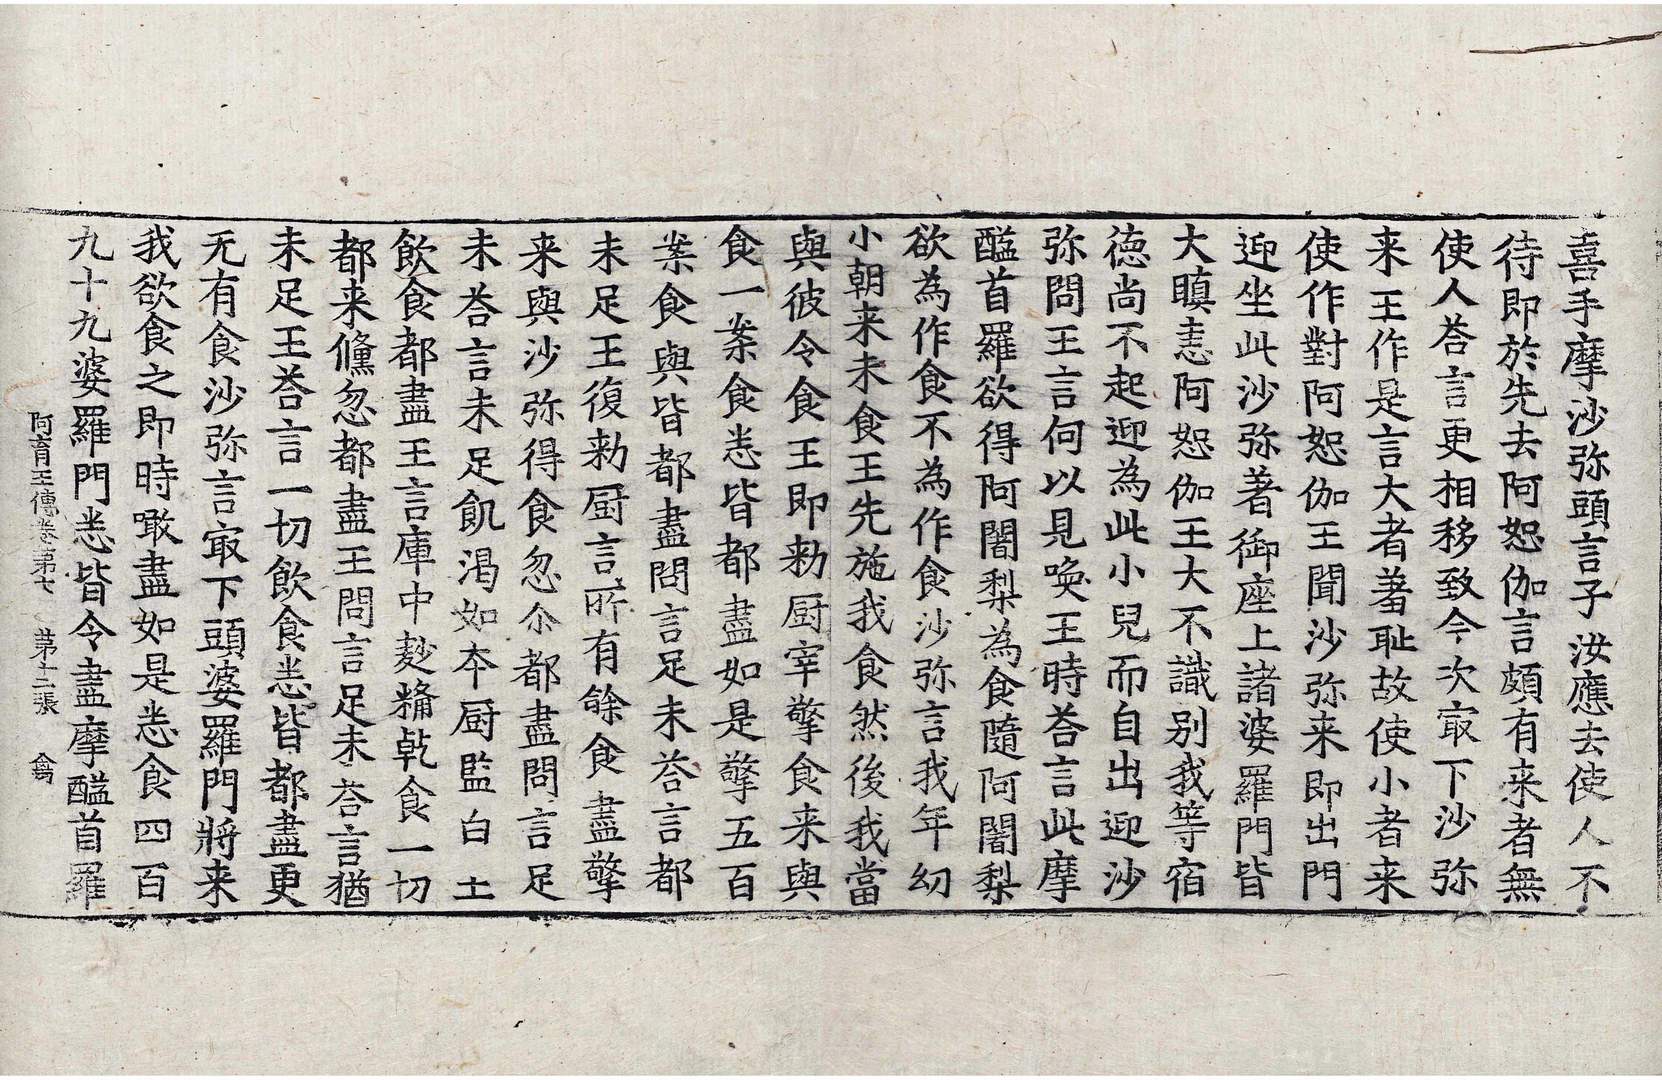 喜手摩沙弥頭言子汝應去使人不
待即於先去阿恕伽言頗有来者無
使人荅言更相移致令次㝡下沙弥
来王作是言大者羞耻故使小者来
使作對阿恕伽王聞沙弥来即出門
迎坐此沙弥著御座上諸婆羅門皆
大瞋恚阿恕伽王大不識别我等宿
徳尚不起迎為此小兒而自出迎沙
弥問王言何以見喚王時荅言此摩
醯首羅欲得阿闍梨為食隨阿闍梨
欲為作食不為作食沙弥言我年幼
小朝来未食王先施我食然後我當
與彼令食王即勑厨宰擎食来與
食一案食悉皆都盡如是擎五百
案食與皆都盡問言足未荅言都
未足王復勑厨言所有餘食盡擎
来與沙弥得食忽尒都盡問言足
未荅言未足飢渴如本厨監白王
飲食都盡王言庫中麨糒乹食一切
都来儵忽都盡王問言足未荅言猶
未足王荅言一切飲食悉皆都盡更
无有食沙弥言㝡下頭婆羅門將来
我欲食之即時噉盡如是悉食四百
九十九婆羅門悉皆令盡摩醯首羅
阿育王傳卷第七　第十二張　禽